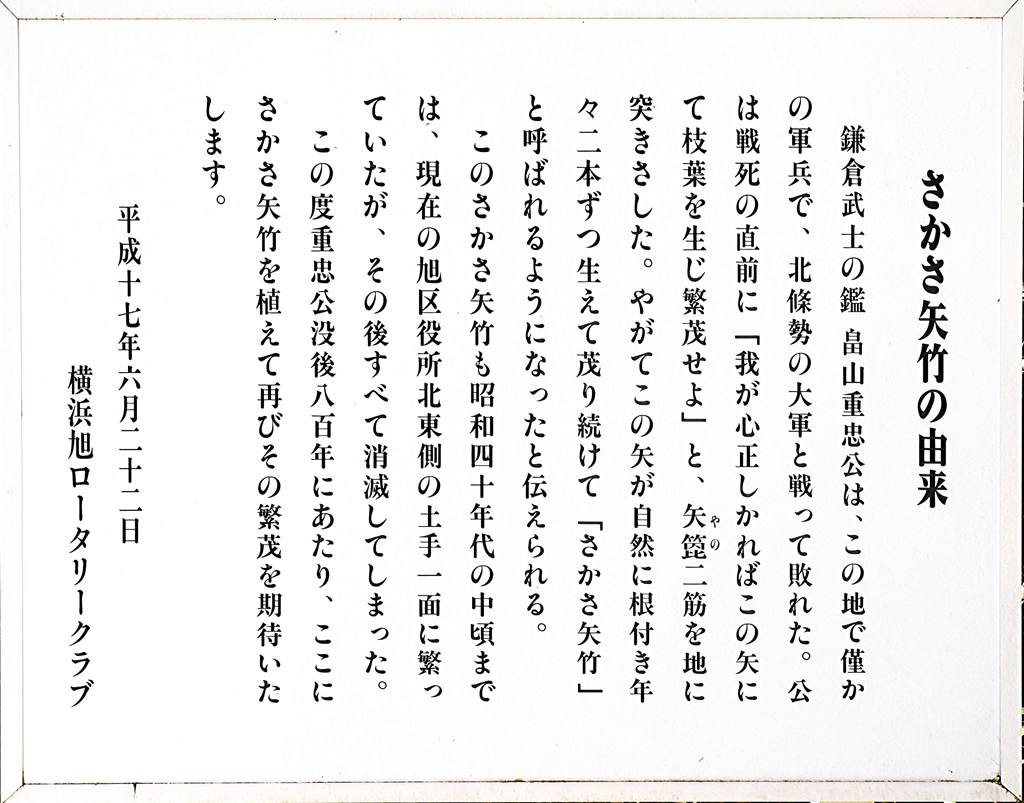 さかさ矢竹の由来
鎌倉武士の鑑 畠山重忠公は、この地で僅か
の軍兵で、北條勢の大軍と戦って敗れた。公
は戦死の直前に「我が心正しかればこの矢に
て枝葉を生じ繁茂せよ」と、矢箆二筋を地に
やの
突きさした。やがてこの矢が自然に根付き年
々二本ずつ生えて茂り続けて「さかさ矢竹」
と呼ばれるようになったと伝えられる。
このさかさ矢竹も昭和四十年代の中頃まで
は、現在の旭区役所北東側の土手一面に繁っ
ていたが、その後すべて消滅してしまった。
この度重忠公没後八百年にあたり、ここに
さかさ矢竹を植えて再びその繁茂を期待いた
します。
平成十七年六月二十二日
横浜旭ロータリークラブ